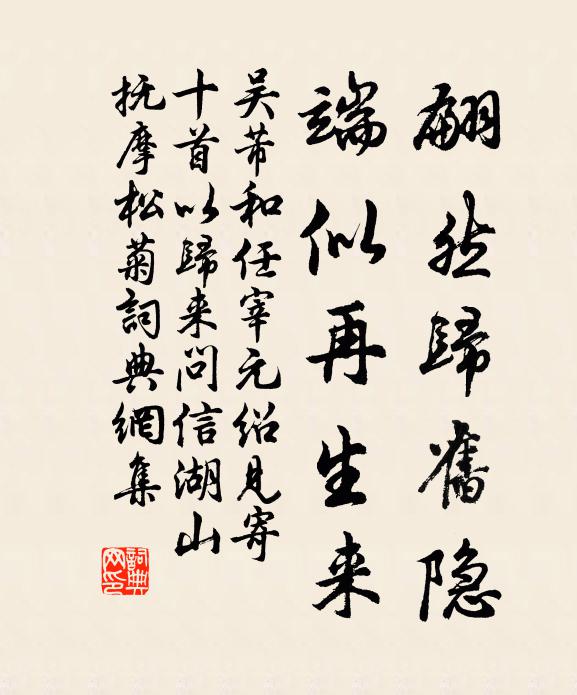 翩然歸舊隐
端似再生来
吴芾和任宰元绍見寄
十首以歸来问信湖山
抚摩松菊詞典網集
詞典网印